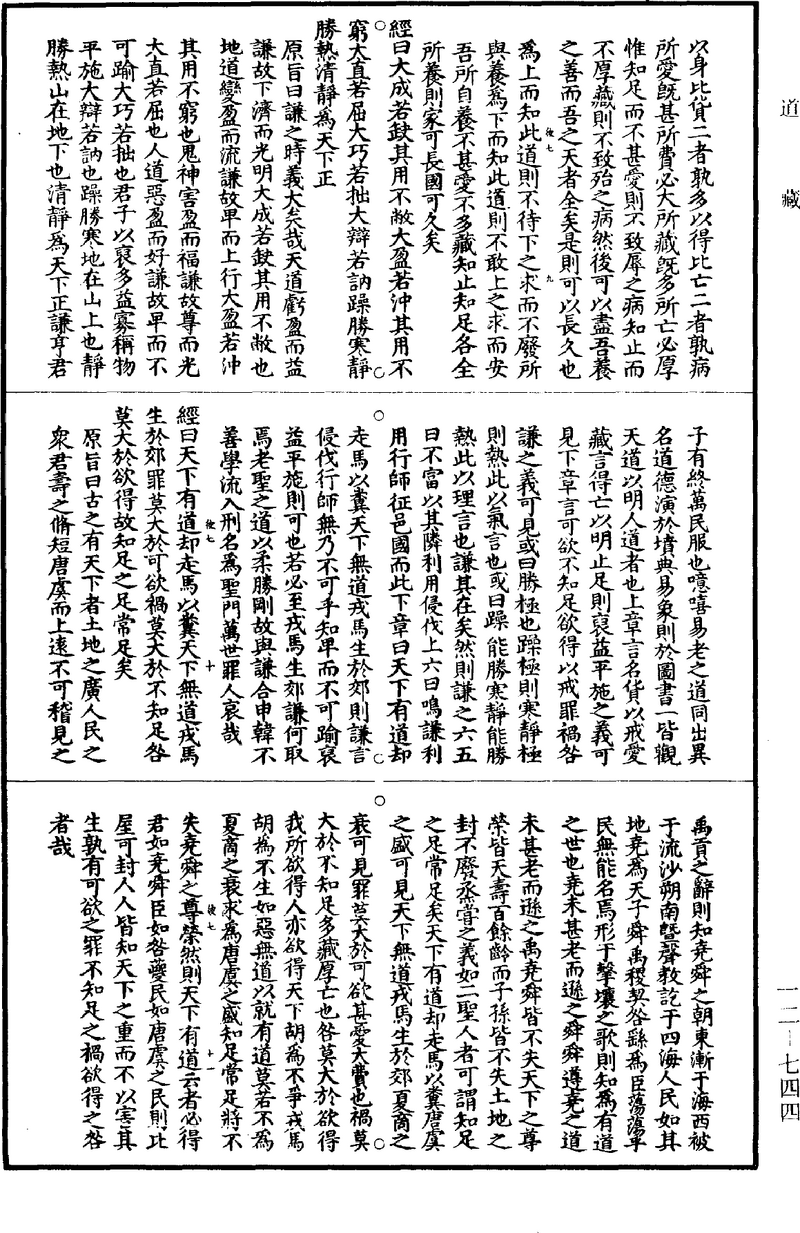 道藏
以身比貨二者孰多以得比亡二者孰病
所愛旣甚所費必大所藏旣多所亡必厚
惟知足而不甚愛則不致辱之病知止而
不厚藏則不致殆之病然後可以盡吾養
之善而吾之天者全矣是則可以長久也
爲上而知此道則不待下之求而不廢所
與養爲下而知此道則不敢上之求而安
吾所自養不甚愛不多藏知止知足各全
所養則家可長國可久矣
經曰大成若缺其用不敝大盈若沖其用不
窮大直若屈大巧若拙大辯若訥躁勝寒靜
勝熱清靜爲天下正
原旨曰謙之時義大矣哉天道虧盈而益
謙故下濟而光明大成若缺其用不敝也
地道變盈而流謙故卑而上行大盈若沖
其用不窮也鬼神害盈而福謙故尊而光
大直若屈也人道惡盈而好謙故卑而不
可踰大巧若拙也君子以裒多益寡稱物
平施大辯若訥也躁勝寒地在山上也靜
勝熱山在地下也清靜爲天下正謙亨君
子有終萬民服也噫嘻易老之道同出異
名道德演於墳典易象則於圖書一皆觀
天道以明人道者也上章言名貨以戒愛
藏言得亡以明止足則裒益平施之義可
見下章言可欲不知足欲得以戒罪禍咎
謙之義可見或曰勝極也躁極則寒靜極
則熱此以氣言也或曰躁能勝寒靜能勝
熱此以理言也謙其在矣然則謙之六五
曰不富以其隣利用侵伐上六曰鳴謙利
用行師征邑國而此下章曰天下有道却
走馬以糞天下無道戎馬生於郊則謙言
侵伐行師無乃不可乎知卑而不可踰裒
益平施則可也若必至戎馬生郊謙何取
焉老聖之道以柔勝剛故與謙合申韓不
善學流入刑名爲聖門萬世罪人哀哉
經曰天下有道却走馬以糞天下無道戎馬
生於郊罪莫大於可欲禍莫大於不知足咎
莫大於欲得故知足之足常足矣
原旨曰古之有天下者土地之廣人民之
衆君壽之脩短唐虞而上遠不可稽見之
禹貢之辭則知堯舜之朝東漸于海西被
于流沙朔南暨聲教訖于四海人民如其
地堯爲天子舜禹稷契咎繇爲臣蕩蕩乎
民無能名焉形于擊壤之歌則知爲有道
之世也堯未甚老而遜之舜舜遵堯之道
未甚老而遜之禹堯舜皆不失天下之尊
榮皆天壽百餘齡而子孫皆不失土地之
封不廢烝嘗之義如二聖人者可謂知足
之足常足矣天下有道却走馬以糞唐虞
之盛可見天下無道戎馬生於郊夏商之
衰可見罪莫大於可欲甚愛大費也禍莫
大於不知足多藏厚亡也咎莫大於欲得
我所欲得人亦欲得天下胡爲不爭戎馬
胡爲不生如惡無道以就有道莫若不爲
夏商之衰求爲唐虞之盛知足常足將不
失堯舜之尊榮然則天下有道云者必得
君如堯舜臣如咎夔民如唐虞之民則比
屋可封人人皆知天下之重而不以害其
生孰有可欲之罪不知足之禍欲得之咎
者哉
一二―七四四